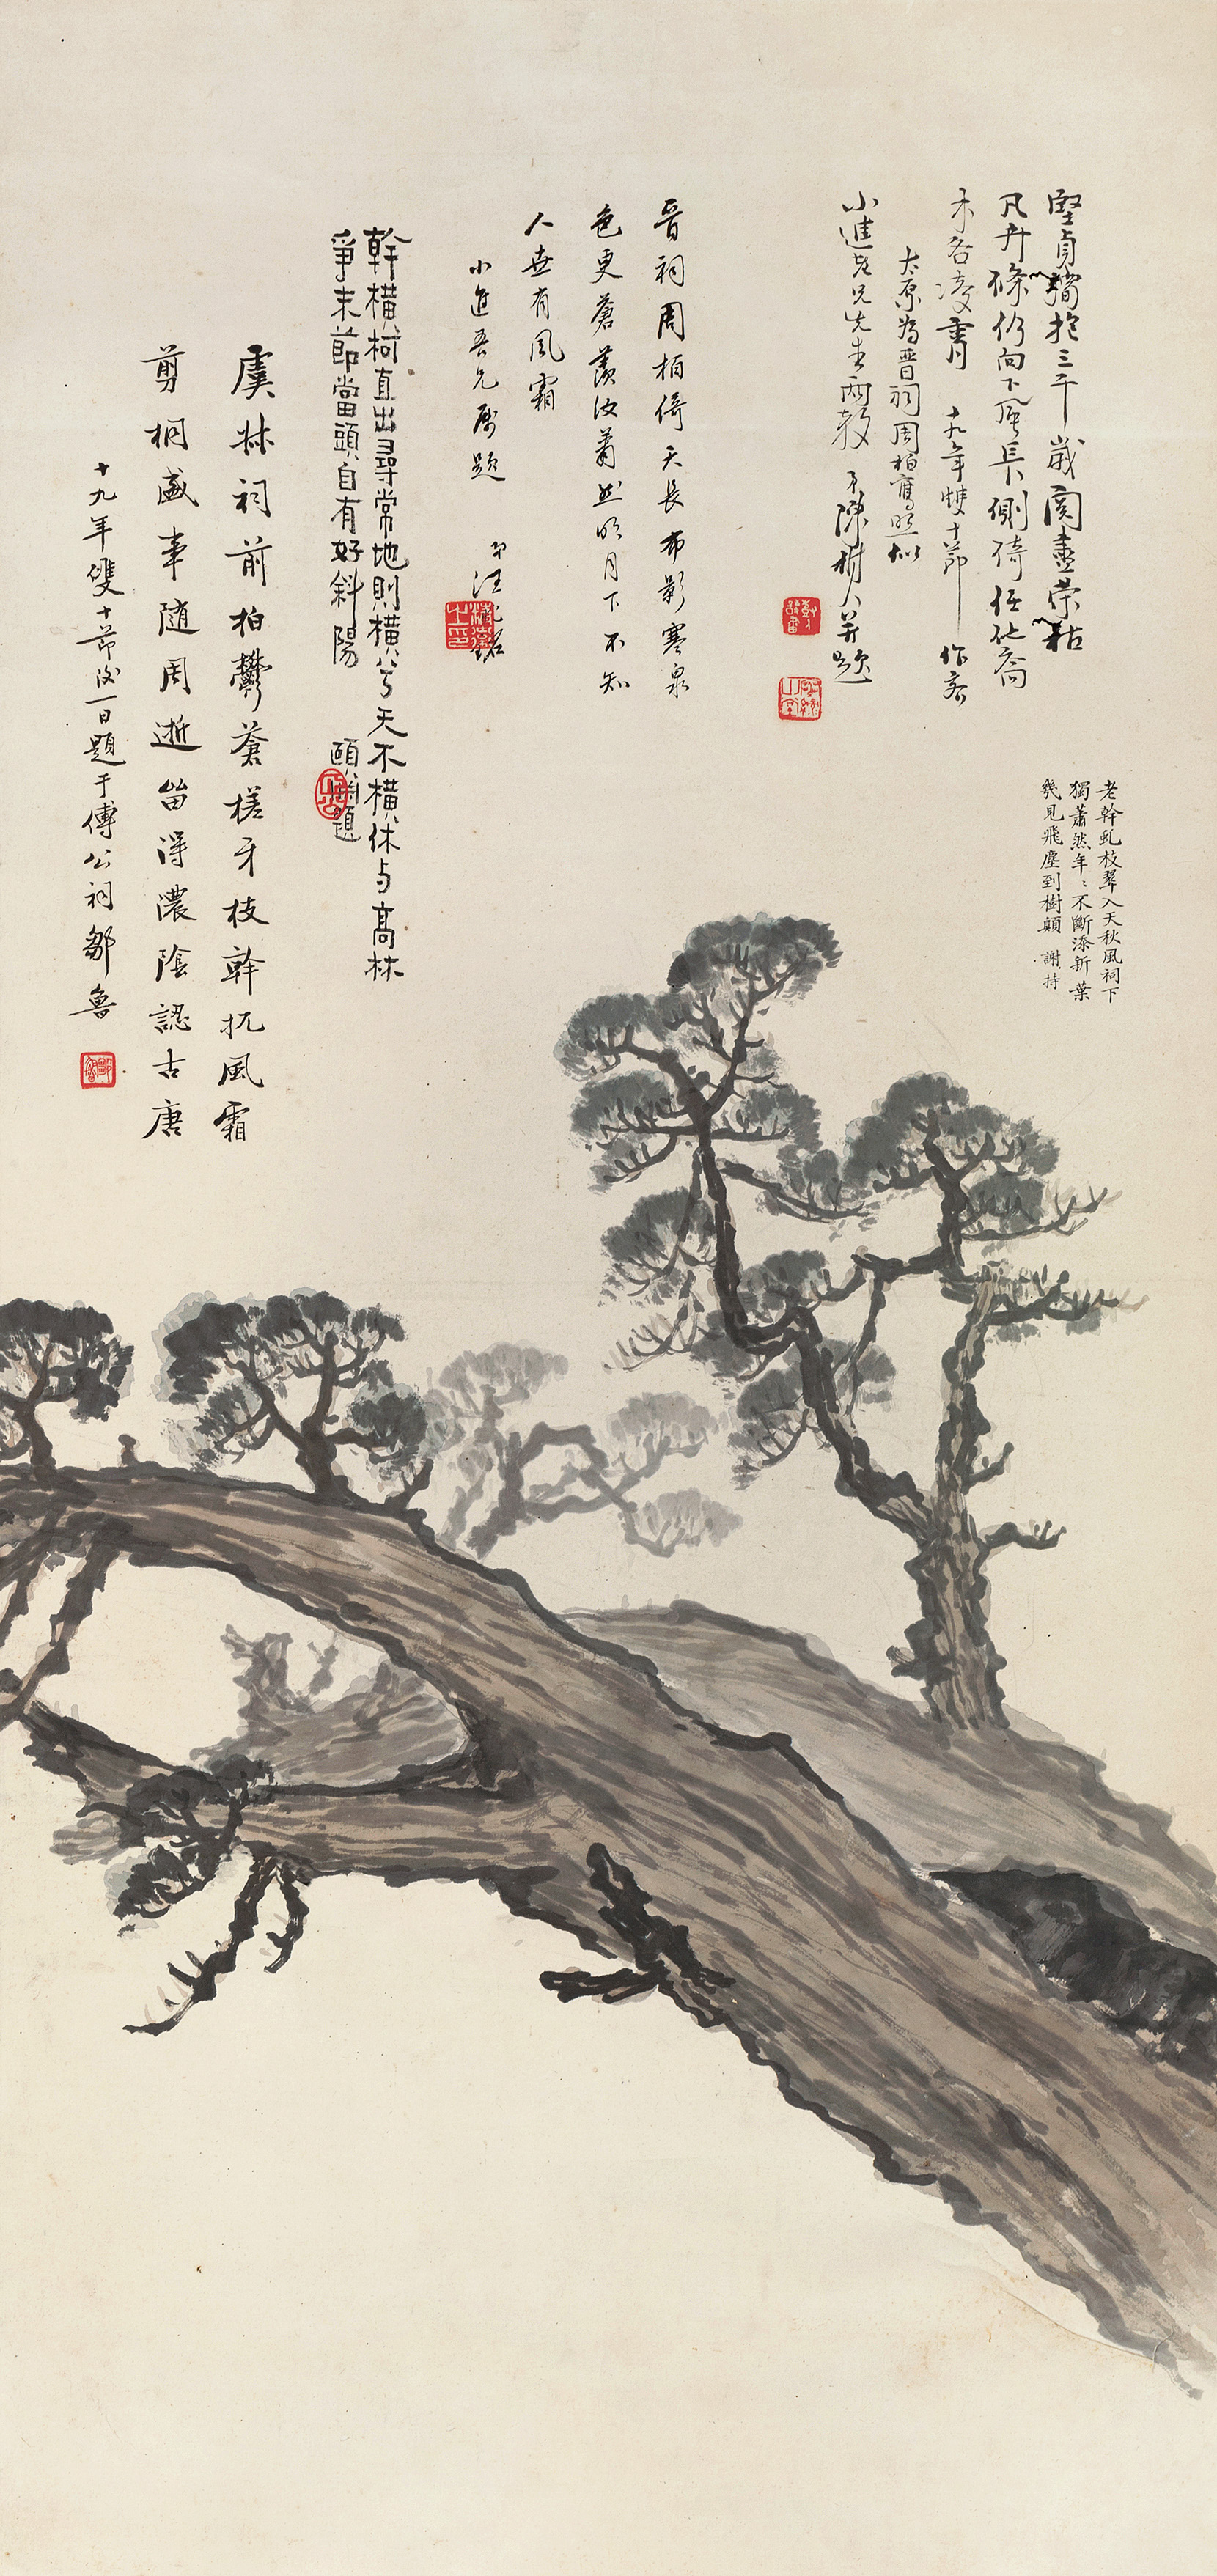 堅貞獨抱三千歲閱盡榮枯
凡卉條仍向下風長側倚任他喬
木各凌霄　十九年雙十節　作客
太原為晉祠周柏寫照似
小進老兄先生兩教　弟陳樹人并題
老幹虬枝翠入天秋風祠下
獨蕭然年〻不斷添新葉
幾見飛塵到樹顛　謝持
晉祠周柏倚天長布影寒泉
色更蒼羨汝蕭然明月下不知
人世有風霜
小進吾兄屬題　弟汪兆銘
幹橫柯直出尋常地則橫兮天不橫休与高林
爭末節當頭自有好斜陽　頤淵題
虞林祠前柏鬱蒼槎牙枝幹抗風霜
剪桐盛事隨周逝留得濃陰認古唐
十九年雙十節後一日題于傅公祠鄒魯